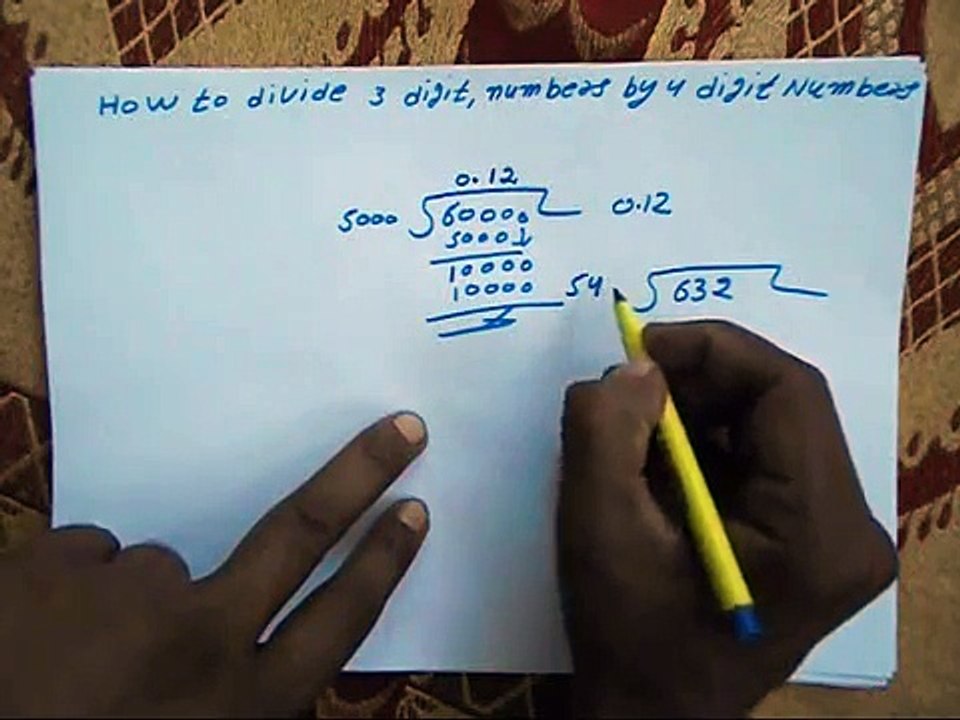 How to divide 3 digit, numbers by 4 digit Numbers
0.12
5000 60000 0.12
5000
10000
10000
54 632